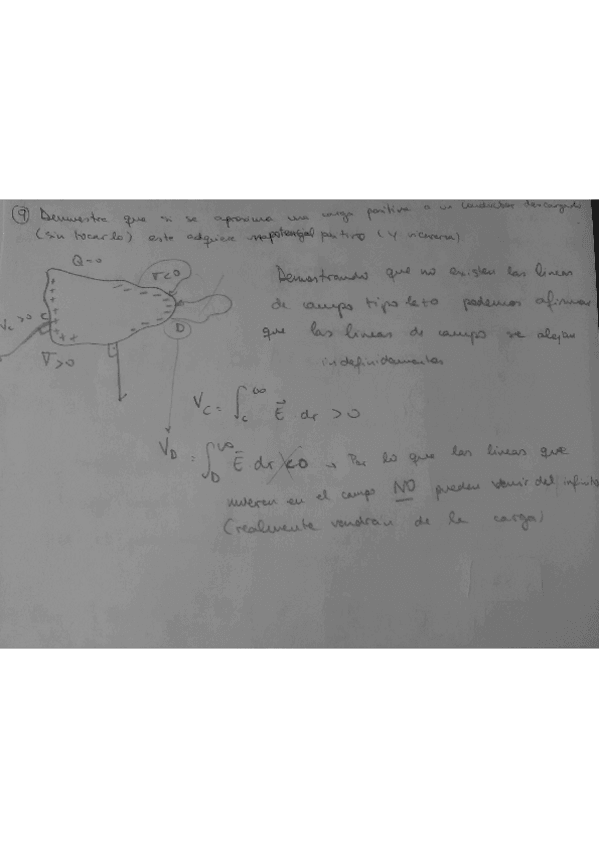 ⑨ Demuestra que si se aproxima una carga positiva a un conductor descargado
(sin tocarlo) este adquiere potencial positivo (y viceversa)
Q=0
σ<0
Demostrando que no existen las lineas
de campo tipo leto podemos afirmar
que las lineas de campo se alejan
indefinidamente
Vc>0 C
D
σ>0
Vc = ∫c^∞ E⃗ dr > 0
VD = ∫D^∞ E⃗ dr <0 → Por lo que las lineas que
mueren en el campo NO pueden venir del infinito
(realmente vendrán de la carga)